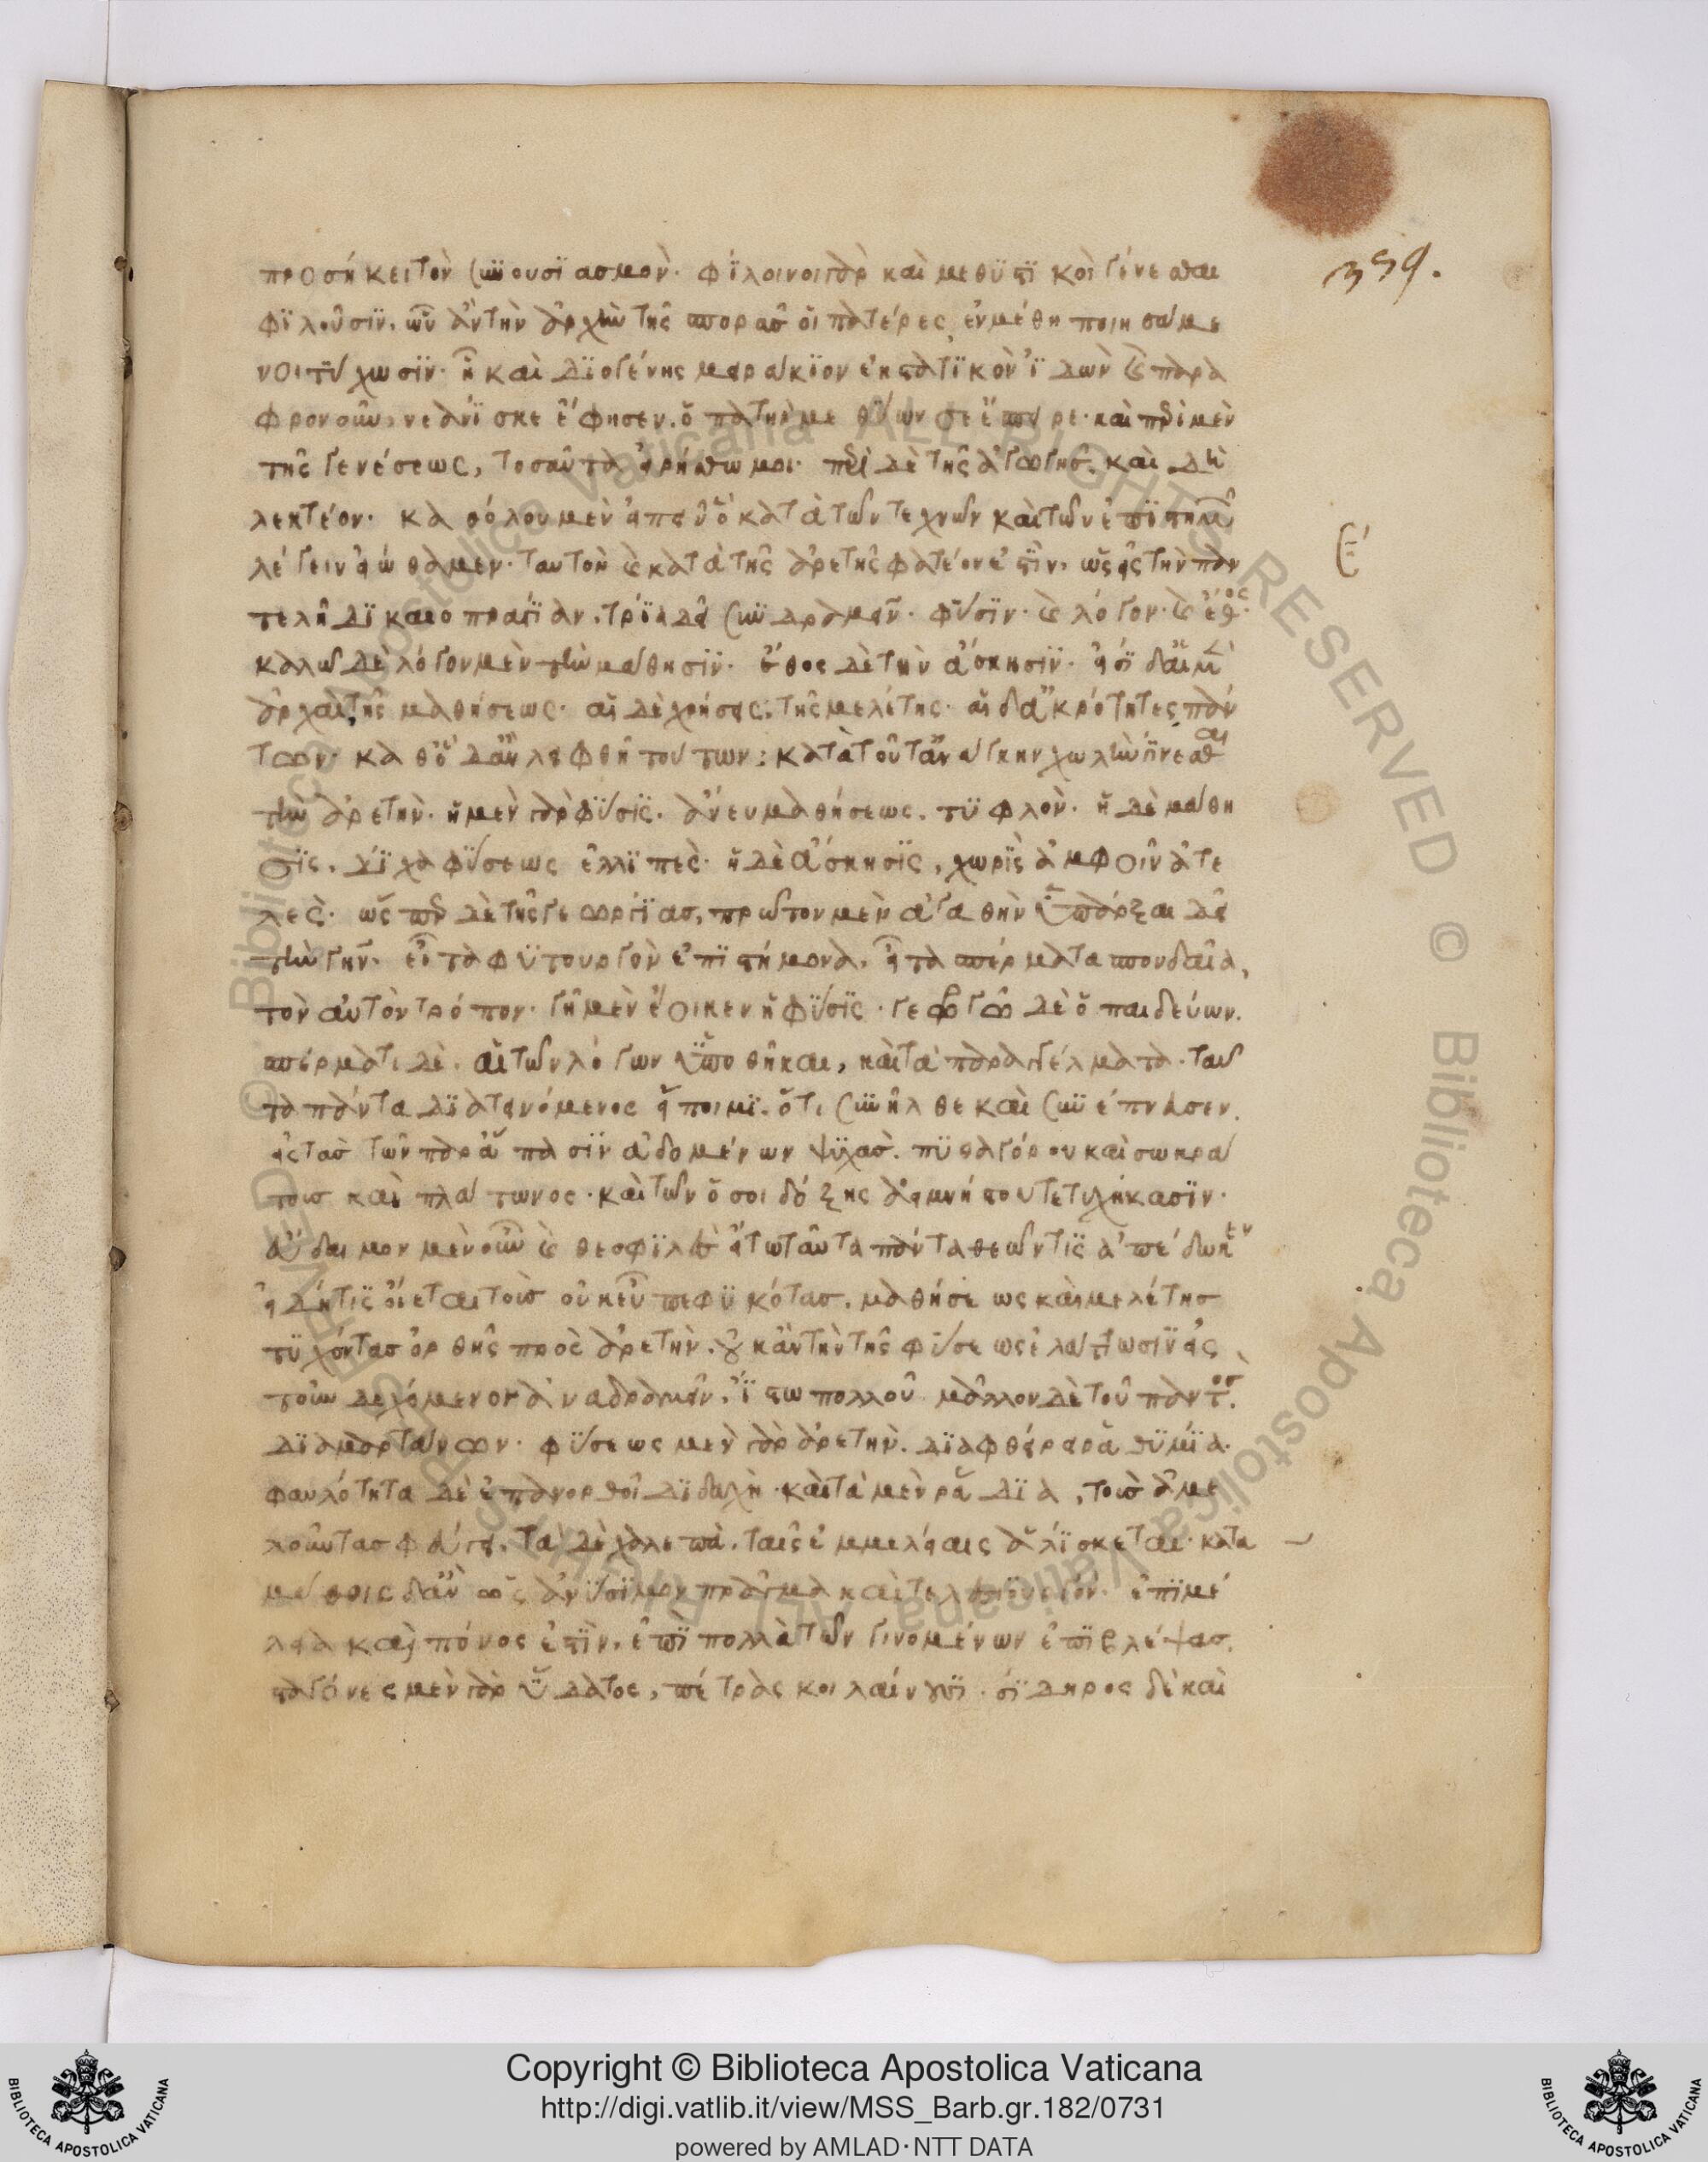 359.
προσήκει τὸν συνουσϊασμὸν· φϊλοινοι γὰρ καὶ μεθυστϊκοὶ γίνεσθαι
φϊλοῦσϊν. ὧν ἂν τὴν ἀρχὴν τῆς σπορᾶς οἱ πατέρες, ἐν μέθη ποιησάμε
νοι τύχωσϊν· ἧ καὶ Δϊογένης μειράκϊον ἐκστατϊκὸν ϊδὼν καὶ παρα
φρονοῦν, νεανϊσκε ἔφησεν. ὁ πατήρ με θύων σε ἔσπειρε· καὶ περὶ μὲν
τῆς γενέσεως, τοσαῦτα εἰρήσθω μοι· περὶ δὲ τῆς ἀγωγῆς. καὶ δὴ
λεκτέον· καθόλου μὲν εἰπεῖν ὃ κατὰ τῶν τεχνῶν καὶ τῶν ἐπϊστημῶν
λέγειν εἰώθαμεν. ταυτὸν καὶ κατὰ τῆς ἀρετῆς φατέον ἐστϊν. ὡς εἰς τὴν παν
τελῆ δϊκαιοπραγϊαν. τρϊα δεῖ συνδραμεῖν. φύσϊν· καὶ λόγον· καὶ ἔθος·
καλῶ δὲ λόγον μὲν τὴν μάθησϊν. ἔθος δὲ τὴν ἄσκησϊν. εἰσϊ δ' αἱ μὲν
ἀρχαὶ τῆς μαθήσεως· αἱ δὲ χρήσεις. τῆς μελέτης. αἱ δ' ἀκρότητες πάν
των· καθ' ὃ δ' ἂν λειφθῆ τούτων: κατὰ τοῦτ' ἀνάγκη χωλὴν γίνεσθαι
τὴν ἀρετήν. ἡ μὲν γὰρ φύσϊς. ἄνευ μαθήσεως. τϋφλὸν. ἡ δὲ μάθη
σϊς. δϊχα φύσεως ἐλλϊπὲς· ἡ δὲ ἄσκησϊς, χωρϊς ἀμφοῖν ἀτε
λές· ὥσπερ δὲ τῆς γεωργϊας, πρῶτον μὲν ἀγαθὴν ὑπάρξαι δεῖ
τὴν γῆν. εἶτα φϋτουργὸν ἐπϊστήμονα. εἶτα σπέρματα σπουδαῖα,
τὸν αὐτὸν τρόπον· γῆ μὲν ἔοικεν ἡ φύσϊς. γεωργῶ δὲ ὁ παιδεύων.
σπέρματι δὲ. αἱ τῶν λόγων ὑποθῆκαι, καὶ τὰ παραγγέλματα. ταῦ
τα πάντα δϊατεινόμενος εἴποιμϊ. ὅτι συνῆλθε καὶ συνέπνευσεν.
εἰς τὰς τῶν παρ' ἅπασϊν ἀδομένων ψϋχὰς. πϋθαγόρου καὶ σωκρά
τους καὶ πλάτωνος. καὶ τῶν ὅσοι δόξης ἀειμνήστου τετυχήκασϊν.
εὔδαιμον μὲν οὖν καὶ θεοφϊλὲς εἴ τω ταῦτα πάντα θεῶν τϊς ἀπέδωκεν
εἰ δή τϊς οἴεται τοὺς οὐκ εὖ πεφϋκότας. μαθήσεως καὶ μελέτης
τϋχόντας ὀρθῆς πρὸς ἀρετὴν. οὐκ ἂν τὴν τῆς φύσεως ἐλάττωσϊν εἰς
τοὐνδεχόμενον ἀναδραμεῖν. ϊστω πολλοῦ μᾶλλον δὲ τοῦ παντὸς.
δϊαμαρτάνων. φύσεως μὲν γὰρ ἀρετὴν. δϊαφθείρει ῥαθϋμϊα.
φαυλότητα δὲ ἐπανορθοῖ δϊδαχὴ. καὶ τὰ μὲν ῥάδϊα, τοὺς ἀμε
λοῦντας φεύγει. τὰ δὲ χαλεπὰ. ταῖς ἐπιμελείαις ἁλϊσκεται. κατα
μάθοις δ' ἂν ὡς ἀνύσϊμον πρᾶγμα καὶ τελεσϊουργόν. ἐπϊμέ
λεια καὶ πόνος ἐστϊν. ἐπϊ πολλὰ τῶν γινομένων ἐπϊβλέψας.
σταγόνες μὲν γὰρ ὕδατος, πέτρας κοιλαίνουσϊ. σϊδηρος δὲ καὶ
Ε΄